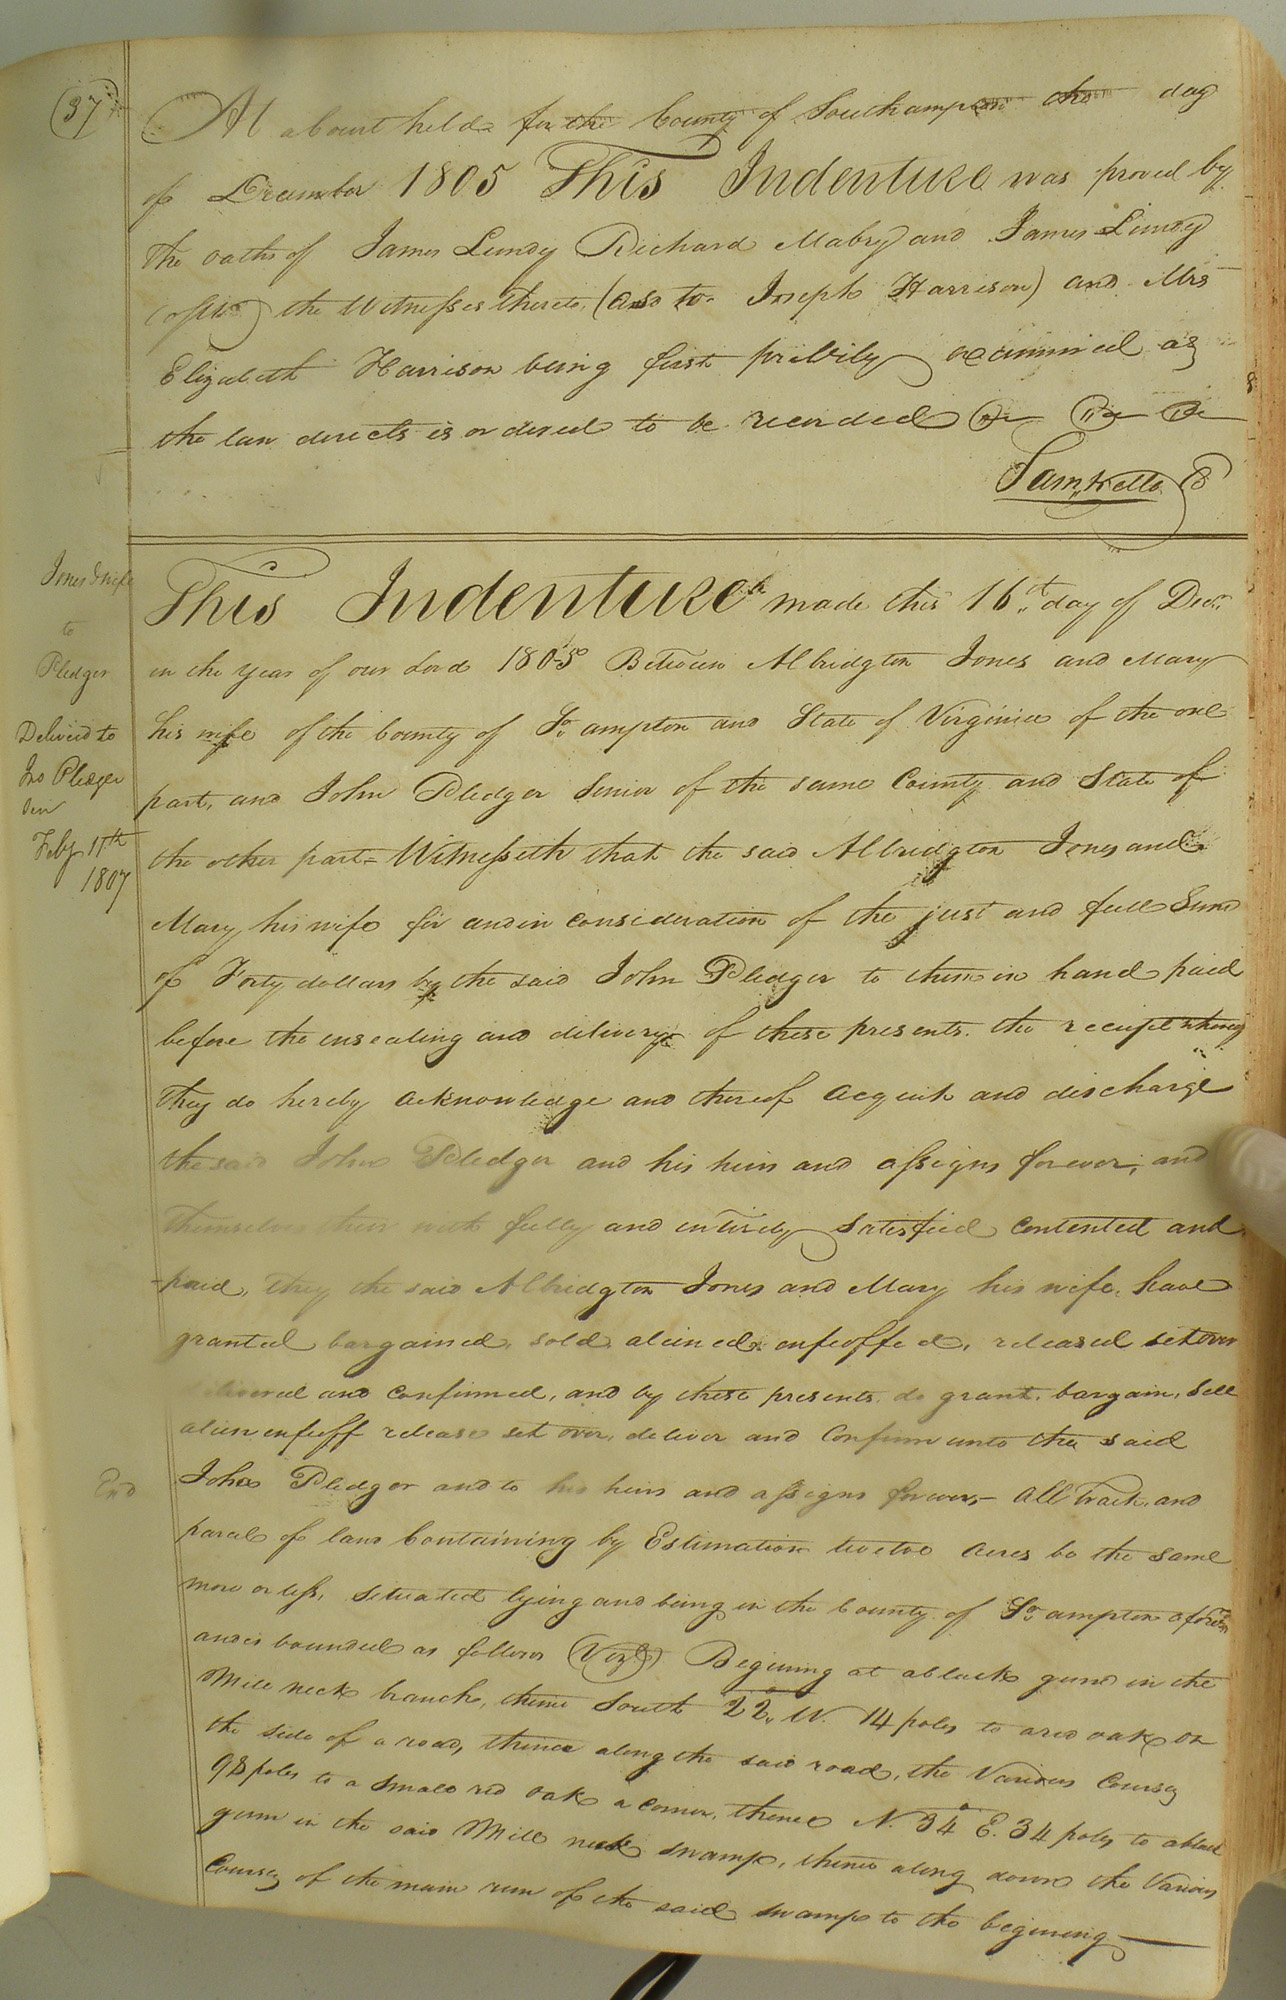 37
At a Court held for the County of Southampton the day
of December 1805 This Indenture was proved by
the oaths of James Lundy Richard Mabry and James Lundy
the Witnesses thereto, (as to Joseph Harrison) and Mrs
Elizabeth Harrison being first privily examined as
the law directs is ordered to be recorded
Saml Kello
Jones & wife
to
Pledger
Deliverd to
Jno Pledger
Sen
Feby 11th
1807
This Indenture made this 16th day of Decr.
in the year of our Lord 1805 Between Albridgton Jones and Mary
his wife of the County of So. ampton and State of Virginia of the one
part, and John Pledger Senior of the same County and State of
the other part = Witnesseth that the said Albridgton Jones and
Mary his wife for and in consideration of the just and full Sum
of Forty dollars by the said John Pledger to them in hand paid
before the ensealing and delivery of these presents. the receipt whereof
they do hereby acknowledge and thereof acquit and discharge
the said John Pledger and his heirs and assigns forever; and
themselves therewith fully and intirely satisfied contented and
paid, They the said Albridgton Jones and Mary his wife, have
granted bargained, sold, aliened, enfeoffed, released set over
delivered and confirmed, and by these presents do grant, bargain, Sell
alien enfeoff release set over, deliver and Confirm unto the said
John Pledger and to his heirs and assigns forever,- All tract, and
End
parcel of land Containing by Estimation twelve acres be the same
more or less, situated lying and being in the County of So. ampton aforesd
and is bounded as follows (Vizt) Begining at a black gum in the
Mill neck branch, thence South 22° W. 14 poles to a red oak on
the side of a road, thence along the said road, the Various Courses
98 poles to a small red oak a corner, thence N. 34° E. 34 poles to a black
gum in the said Mill neck swamp, thence along down the Various
Courses of the main run of the said swamp to the begining